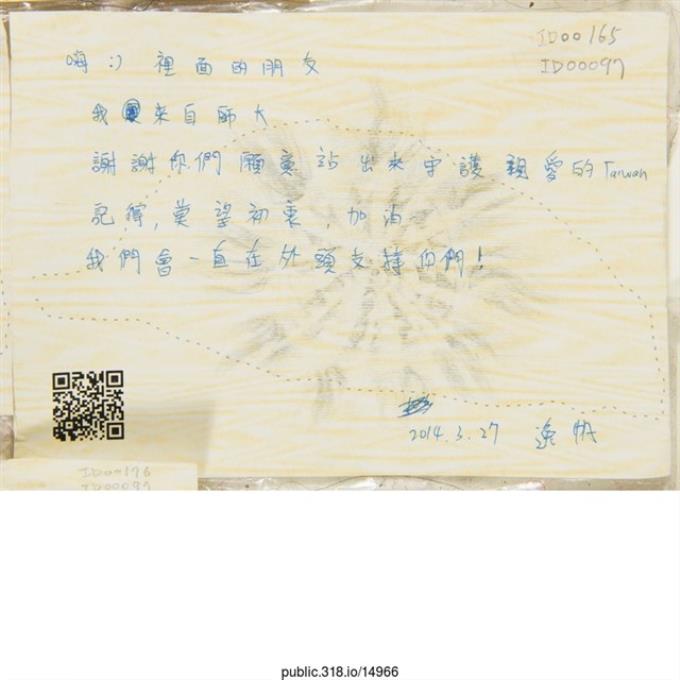 ID00165
ID00097
嗨 :) 裡面的朋友
我來自師大
謝謝你們願意站出來守護親愛的Taiwan
記得, 莫望初衷, 加油
我們會一直在外頭支持你們!
2014.3.27 逸帆
ID00176
ID00097
public.318.io/14966